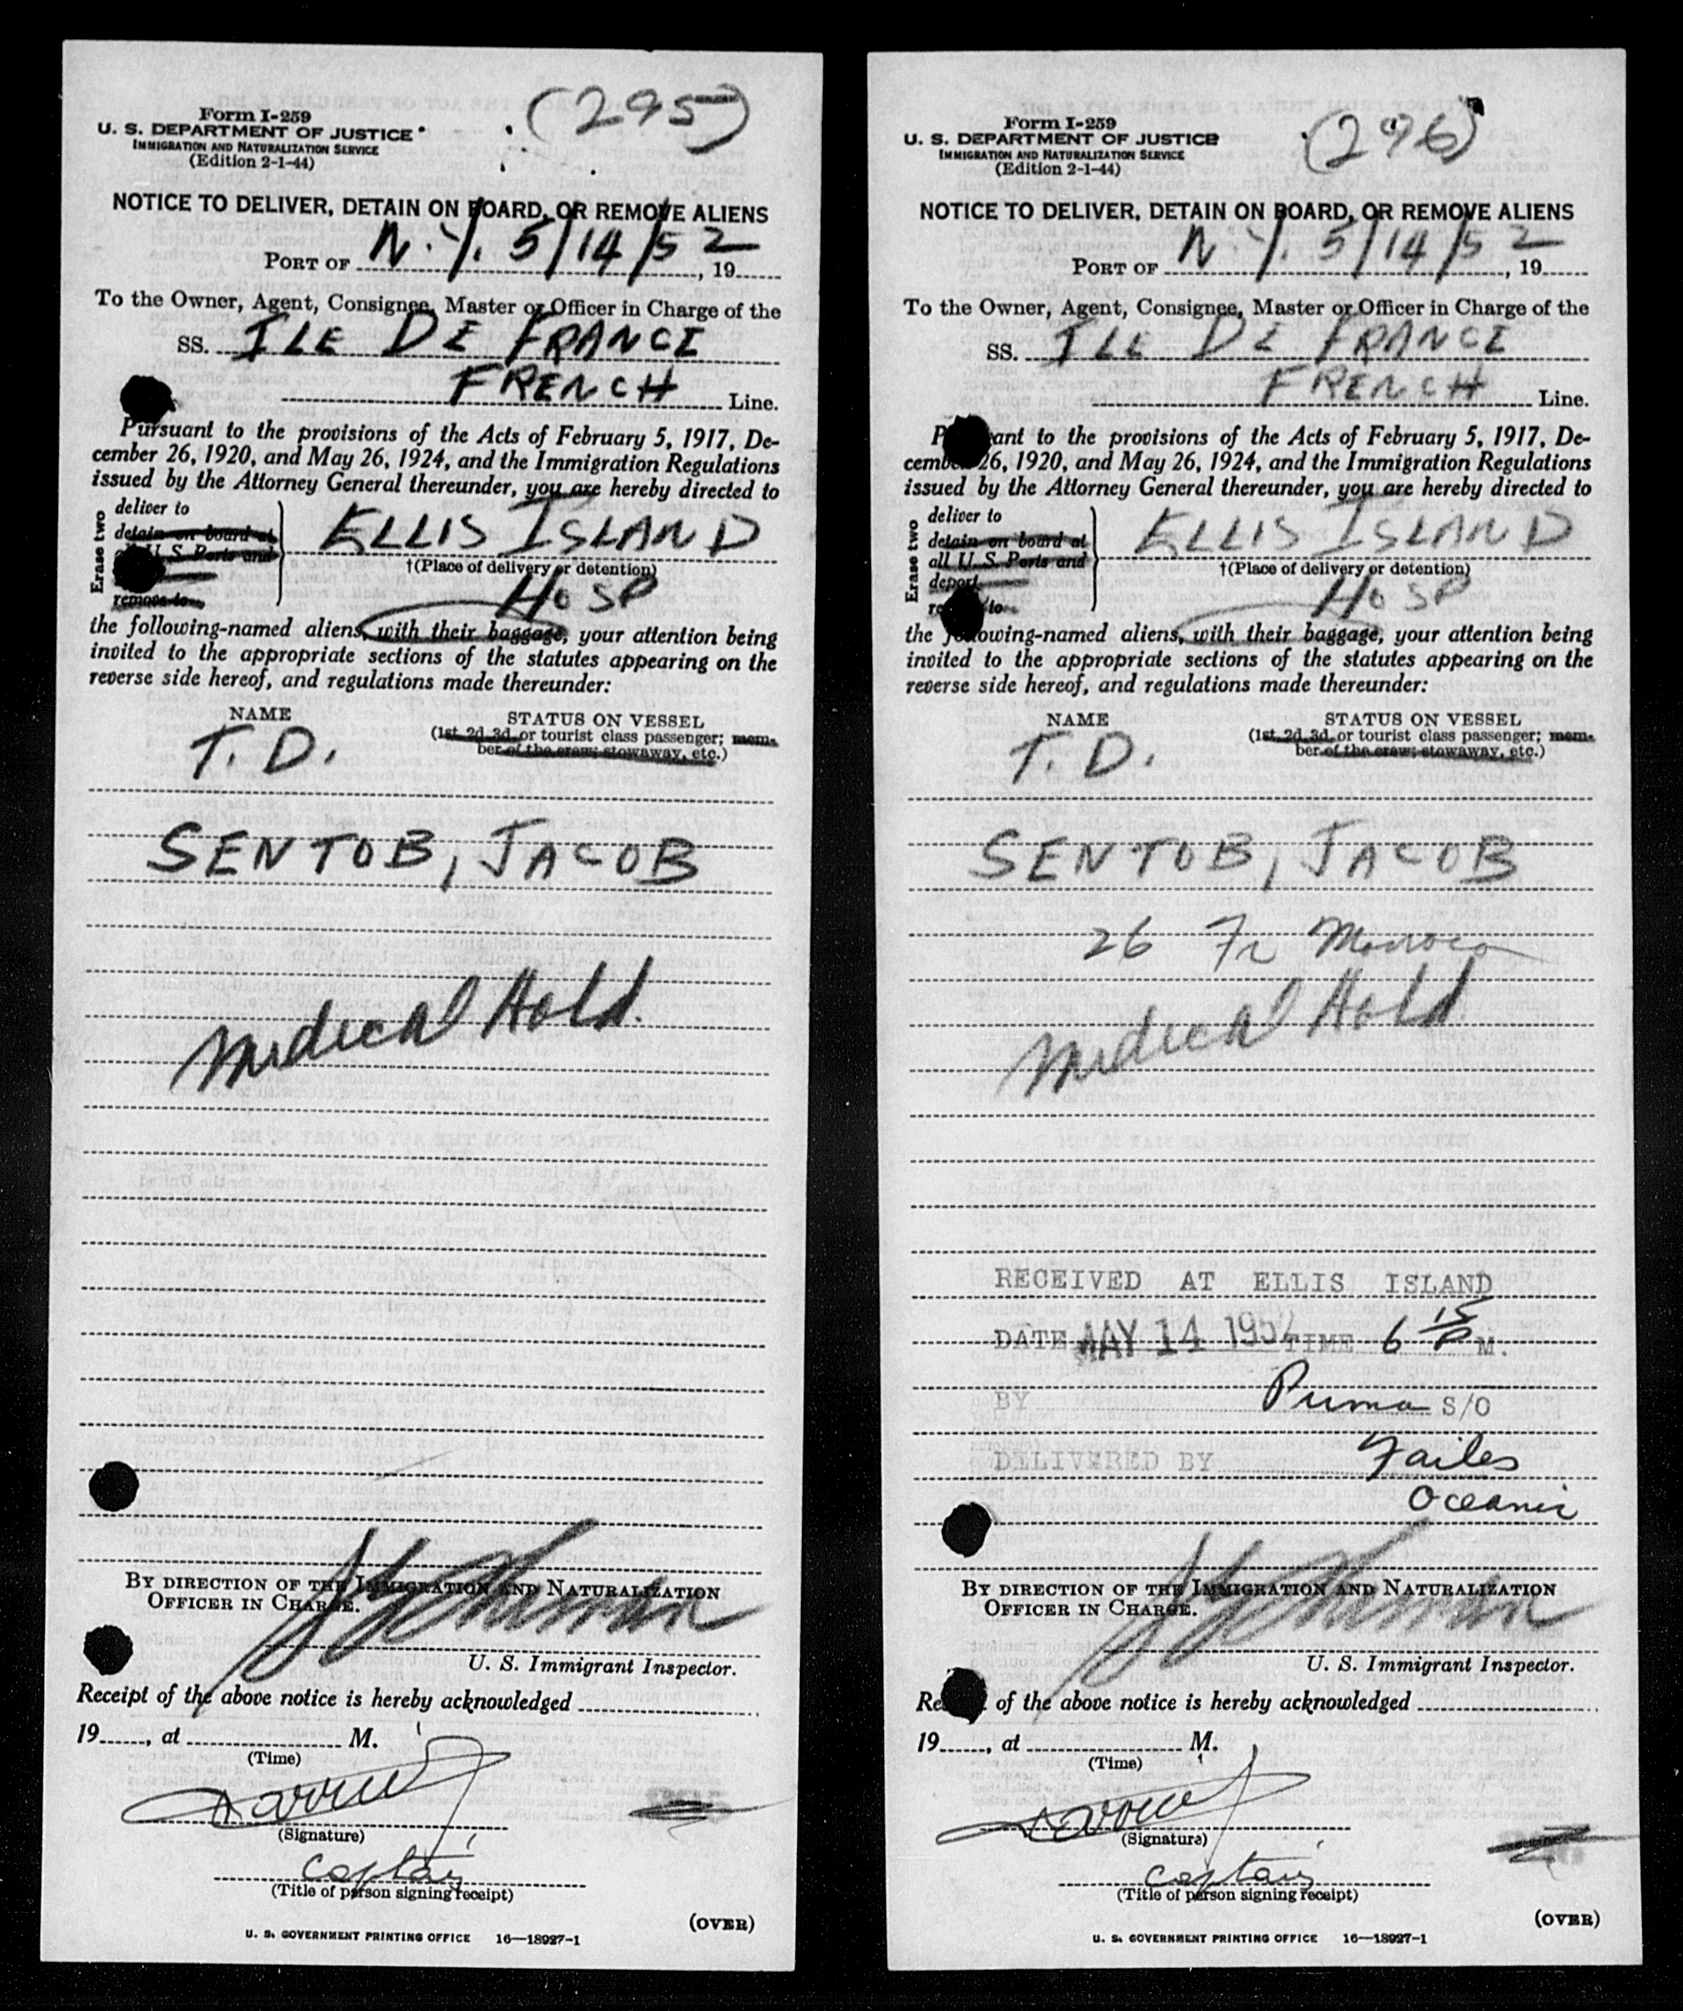 (295)
Form I-259
U. S. DEPARTMENT OF JUSTICE
IMMIGRATION AND NATURALIZATION SERVICE
(Edition 2-1-44)
NOTICE TO DELIVER, DETAIN ON BOARD, OR REMOVE ALIENS
PORT OF N.Y. 5/14/52, 19
To the Owner, Agent, Consignee, Master or Officer in Charge of the
SS. ILE DE FRANCE
FRENCH Line.
Pursuant to the provisions of the Acts of February 5, 1917, De-
cember 26, 1920, and May 26, 1924, and the Immigration Regulations
issued by the Attorney General thereunder, you are hereby directed to
Erase two
deliver to
detain on board at
all U. S. Ports and
remove to
ELLIS ISLAND
†(Place of delivery or detention)
HOSP
the following-named aliens, with their baggage, your attention being
invited to the appropriate sections of the statutes appearing on the
reverse side hereof, and regulations made thereunder:
NAME
STATUS ON VESSEL
(1st, 2d, 3d, or tourist class passenger; mem-
ber of the crew; stowaway, etc.)
T. D.
SENTOB, JACOB
Medical Hold.
BY DIRECTION OF THE IMMIGRATION AND NATURALIZATION
OFFICER IN CHARGE.
U. S. Immigrant Inspector.
Receipt of the above notice is hereby acknowledged
19, at M.
(Time)
(Signature)
Captain
(Title of person signing receipt)
(OVER)
U. S. GOVERNMENT PRINTING OFFICE 16—18927-1
(296)
Form I-259
U. S. DEPARTMENT OF JUSTICE
IMMIGRATION AND NATURALIZATION SERVICE
(Edition 2-1-44)
NOTICE TO DELIVER, DETAIN ON BOARD, OR REMOVE ALIENS
PORT OF N.Y. 5/14/52, 19
To the Owner, Agent, Consignee, Master or Officer in Charge of the
SS. ILE DE FRANCE
FRENCH Line.
Pursuant to the provisions of the Acts of February 5, 1917, De-
cember 26, 1920, and May 26, 1924, and the Immigration Regulations
issued by the Attorney General thereunder, you are hereby directed to
Erase two
deliver to
detain on board at
all U. S. Ports and
deport
remove to
ELLIS ISLAND
†(Place of delivery or detention)
HOSP
the following-named aliens, with their baggage, your attention being
invited to the appropriate sections of the statutes appearing on the
reverse side hereof, and regulations made thereunder:
NAME
STATUS ON VESSEL
(1st, 2d, 3d, or tourist class passenger; mem-
ber of the crew; stowaway, etc.)
T. D.
SENTOB, JACOB
26 Fr Morroco
Medical Hold.
RECEIVED AT ELLIS ISLAND
DATE MAY 14 1952 TIME 6 15 P M.
BY Puma S/O
DELIVERED BY Failes
Oceanic
BY DIRECTION OF THE IMMIGRATION AND NATURALIZATION
OFFICER IN CHARGE.
U. S. Immigrant Inspector.
Receipt of the above notice is hereby acknowledged
19, at M.
(Time)
(Signature)
Captain
(Title of person signing receipt)
(OVER)
U. S. GOVERNMENT PRINTING OFFICE 16—18927-1